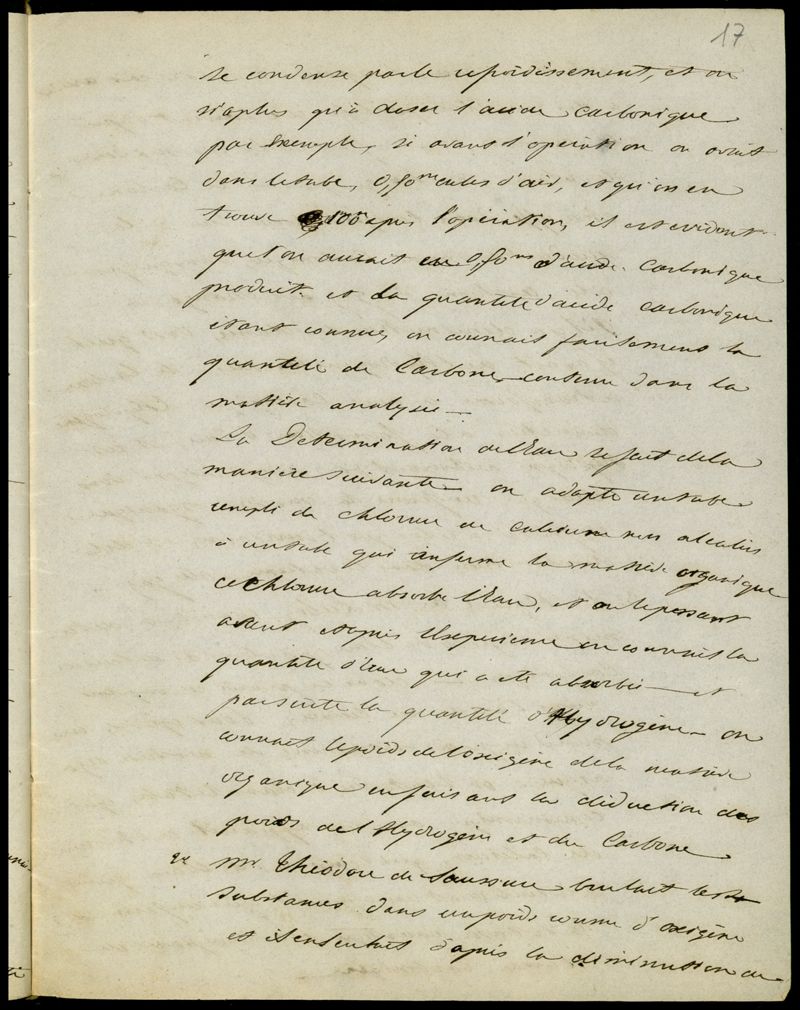 17
se condense par le refroidissement, et on
n'a plus qu'à doser l'acide carbonique
par Exemple, si avant l'operation on avait
dans le tube, 0,50 m cubes d'air, et qu'on en
trouve 100 apres l'opération, il est evident
que l'on aurait eu 0,50 ms d'acide Carbonique
produit. et la quantité d'acide carbonique
étant connue, on connait facilement la
quantité de Carbone contenue dans la
matière analysée —
La Determination de l'Eau se fait de la
maniere suivante — on adapte un tube
rempli de chlorure de Calcium non alcalin
à un tube qui renferme la matière organique
ce chlorure absorbe l'Eau, et en le pessant
avant et apres l'Experience on connait la
quantité d'Eau qui a eté absorbée — et
par suite la quantité d'Hydrogène — on
connait le poids de l'oxigène de la matière
organique en faisant la déduction des
poids de l'Hydrogène et du Carbone
mr. Théodore de Saussure brulait les
substances dans un poids connu d'oxigène
et il en d'apres la diminution du